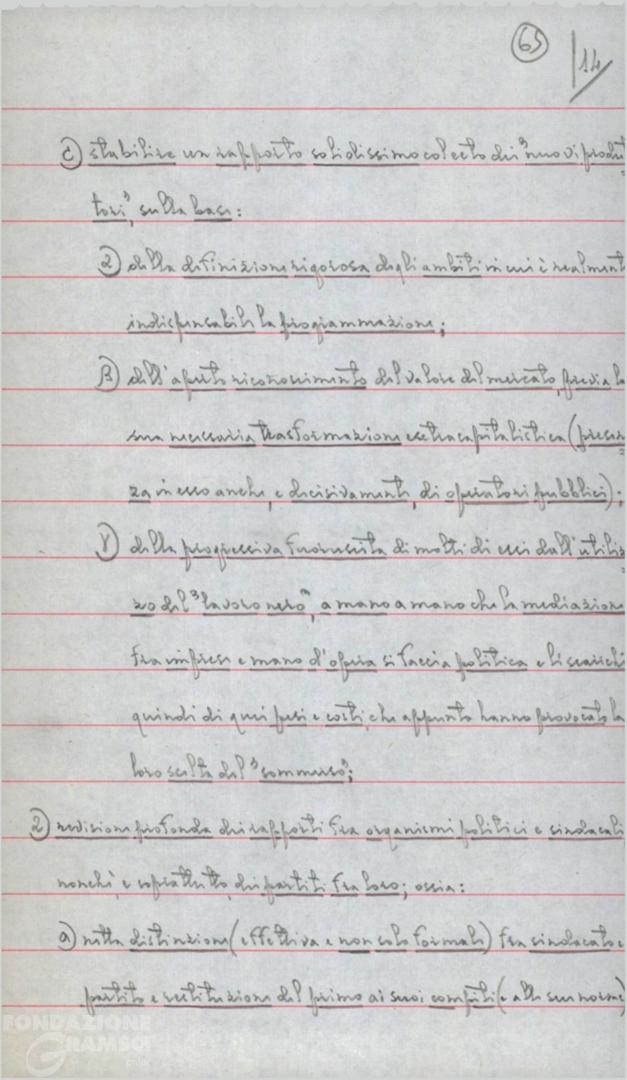 65
14
c) stabilire un rapporto solidissimo col ceto dei "nuovi produt=
tori", sulla base:
α) della definizione rigorosa degli ambiti in cui è realment
indispensabile la programmazione;
β) dell'aperto riconoscimento del valore del mercato, previa la
sua necessaria trasformazione extracapitalistica (presen=
za in esso anche, e decisivamente, di operatori pubblici);
γ) della progressiva fuoruscita di molti di essi dall'utiliz=
zo del "lavoro nero", a mano a mano che la mediazione
fra imprese e mano d'opera si faccia politica e li scarichi
quindi di quei pesi e costi, che appunto hanno provocato la
loro scelta del "sommerso";
2) revisione profonda dei rapporti fra organismi politici e sindacali
nonché, e soprattutto, dei partiti fra loro; ossia:
a) netta distinzione (effettiva e non solo formale) fra sindacato e
partito e restituzione del primo ai suoi compiti (e alle sue norme)
FONDAZIONE
GRAMSCI